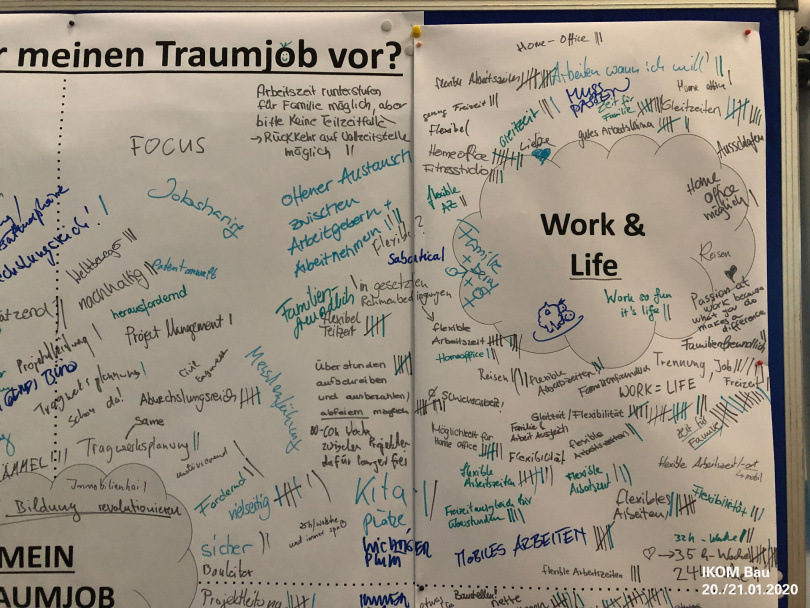 r meinen Traumjob vor?
FOCUS
Jobsharing
Arbeitszeit runterstufen
für Familie möglich, aber
bitte keine Teilzeitfalle
→ Rückkehr auf Vollzeitstelle
möglich
offener Austausch
zwischen
Arbeitgebern +
Arbeitnehmern
Flexibel ?
Sabbatical
in gesetzten
Rahmenbedingungen
flexible
Arbeitszeit
Homeoffice
Familien-
freundlich
flexibel
Teilzeit
nachhaltig
Patentanwalt
herausfordernd
Project Management
Projektleitung
Büro
Tragwerksplanung
schau da!
Abwechslungsreich
same
Tragwerksplanung
motivierend
Immobilienhai
Bildung revolutionieren
MEIN
AUMJOB
Fordernd
vielseitig
sicher
Bauleiter
Projektleitung
Überstunden
aufschreiben
und ausbezahlen/
abfeiern möglich
zwischen Projekten
dafür länger frei
Kita
plätze
WICHTIGER
PUNKT
Home-Office
flexible Arbeitszeiten
Arbeiten wann ich will
MUSS
PASSEN
Zeit für
Familie
Home office
Gleitzeiten
genug Freizeit
Flexibel
Gleitzeit
gutes Arbeitsklima
Ausschlafen
Homeoffice
Fitnessstudio
Liebe
flexible
AZ
Home
office
möglich
Work &
Life
Reisen
Work so fun
it's life
Passion at
work because
what you do
makes a
difference
Familienfreundlich
Trennung Job // Freizeit
Reisen
flexible
Arbeitszeiten
Familienfreundlich
WORK = LIFE
Ø Schichtarbeit
Gleitzeit/Flexibilität
Zeit für
Familie
Möglichkeit für
Home office
Familie &
Arbeit Ausgleich
Flexibilität
flexible
Arbeitszeiten
flexible
Arbeitszeiten
flexible
Arbeitszeit
Flexible Arbeitszeit/-ort
Freizeitausgleich für
Überstunden
Flexibles
Arbeiten
Flexibilität
MOBILES ARBEITEN
32h-Woche
♡ → 35 h-Woche
flexible Arbeitszeiten
24
Baustellen!
nette
IKOM Bau
20./21.01.2020